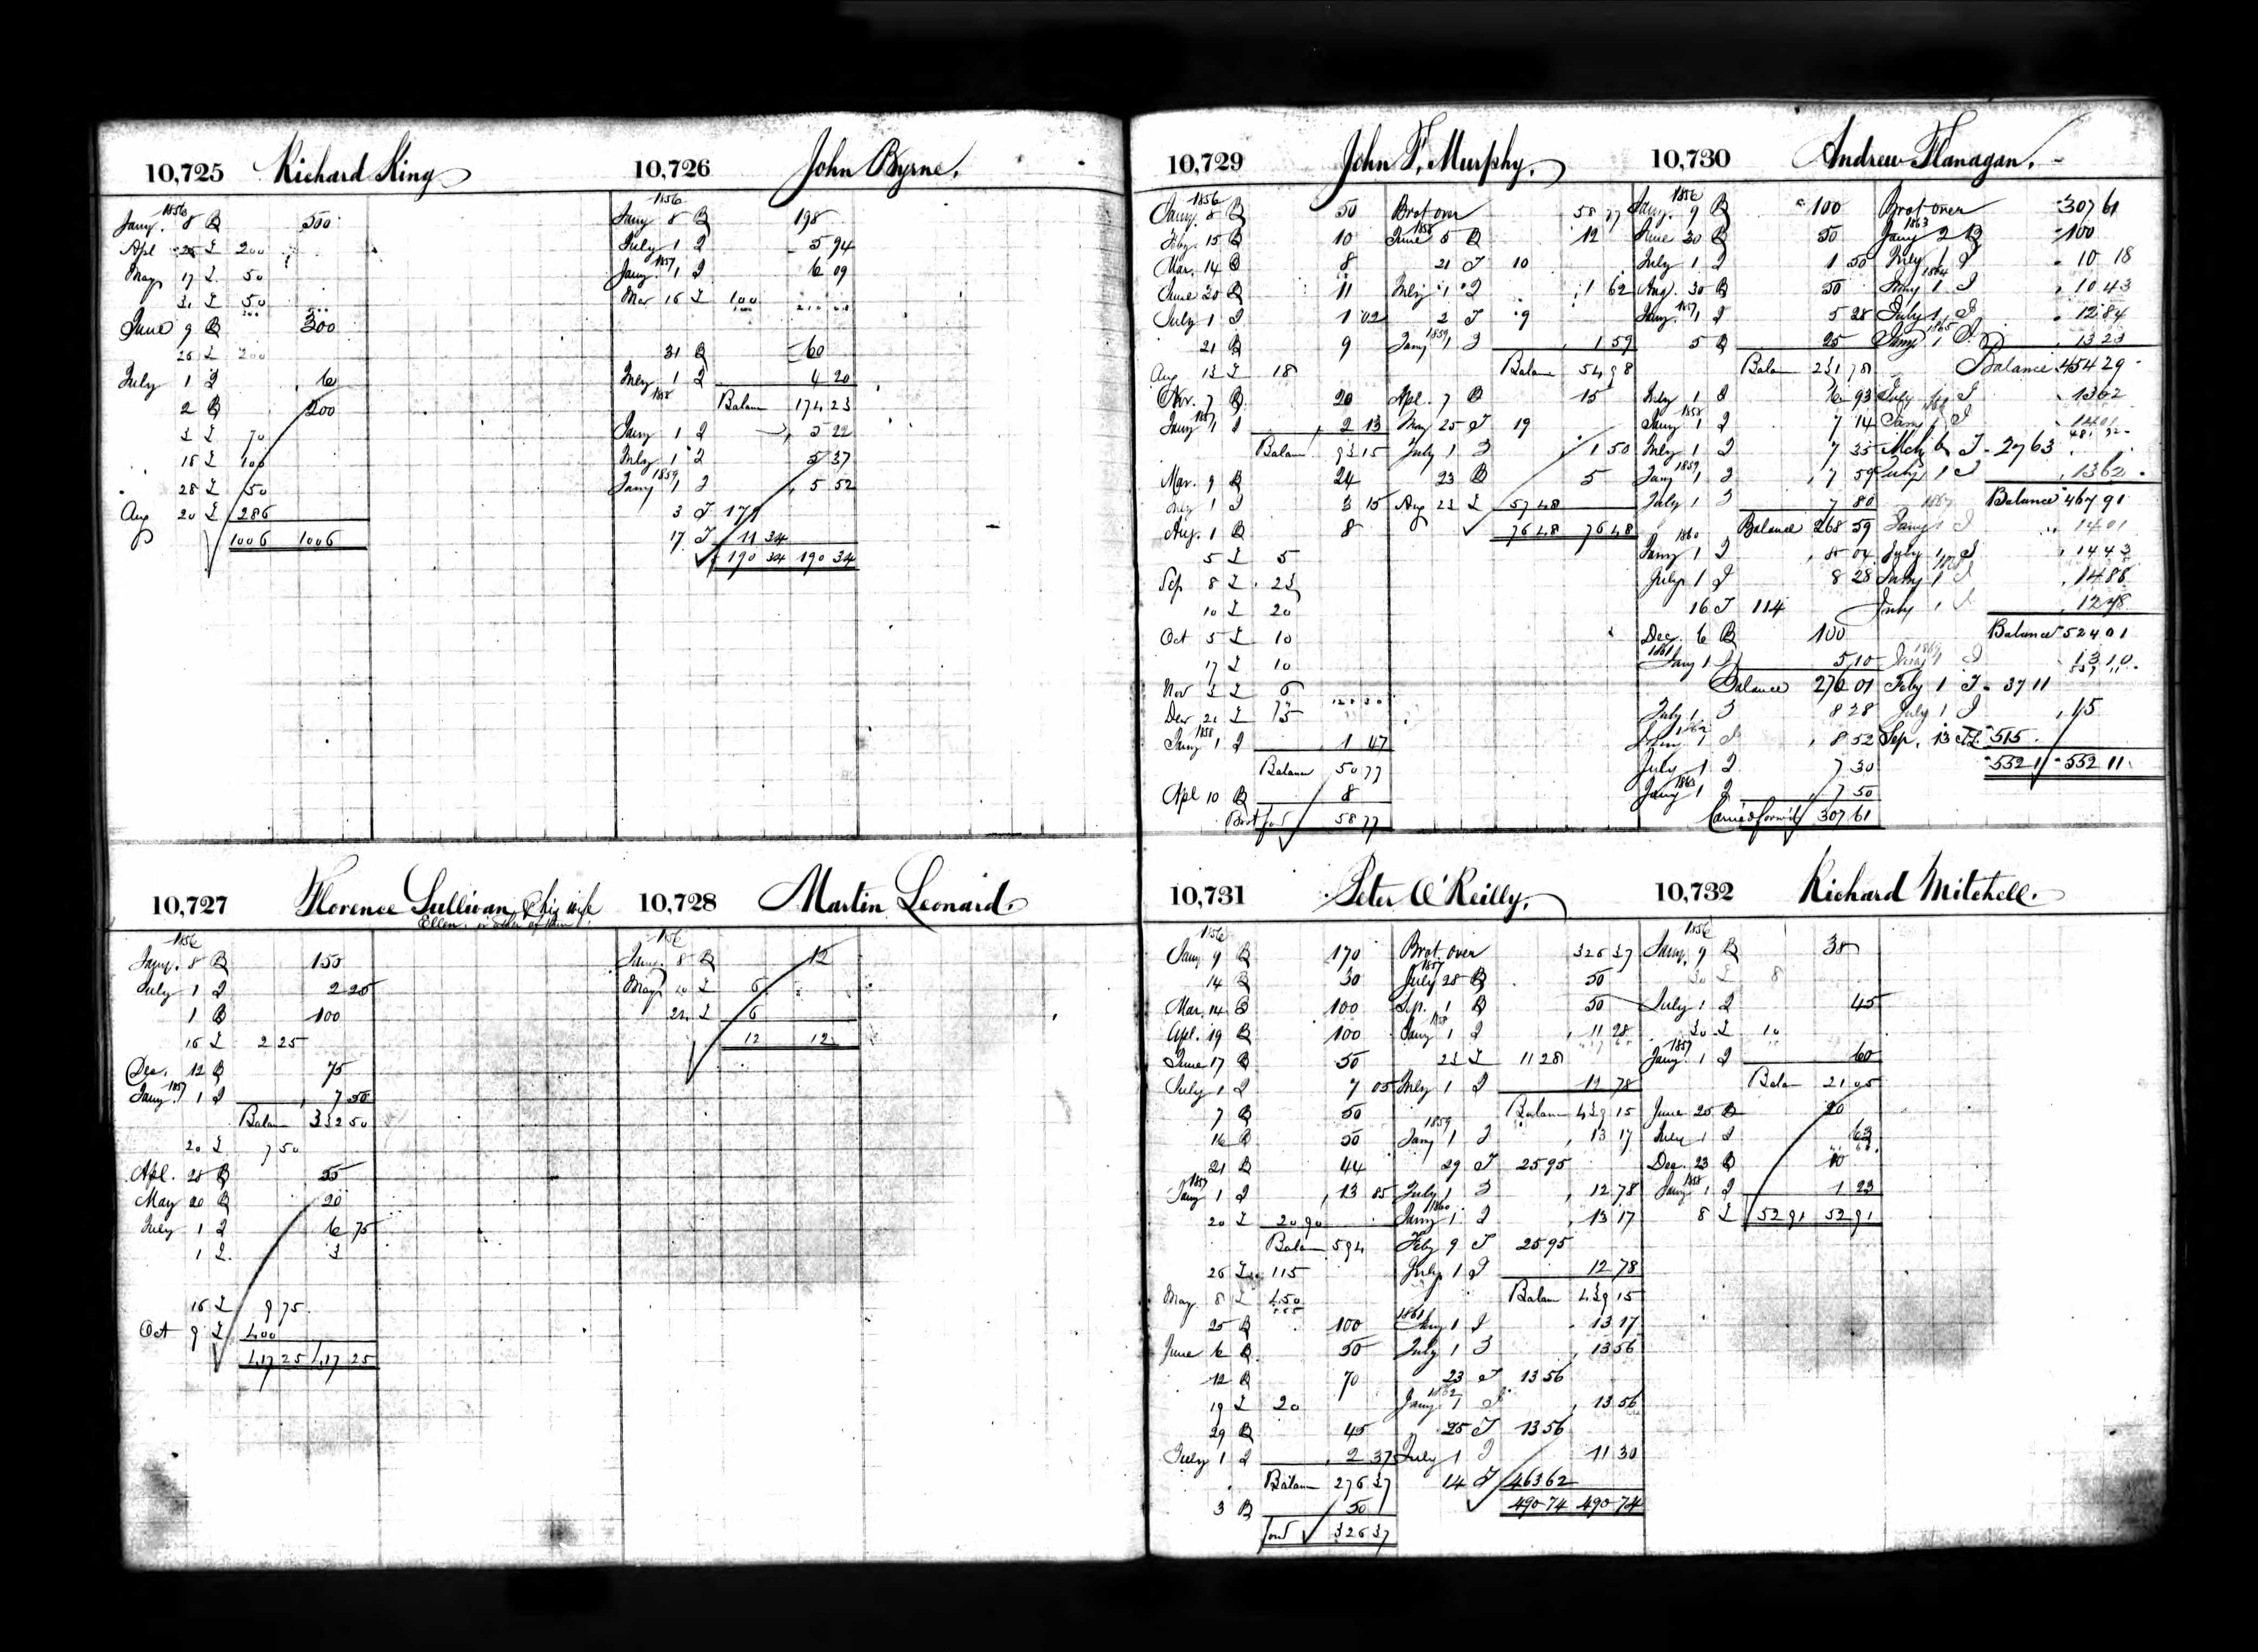 10,725 Richard King
1856
Jany. 8 B 500
Apl 25 L 200
May 17 L 50
31 L 50
June 9 B 300
25 L 200
July 1 I 6
2 B 200
3 L 70
15 L 100
28 L 50
Aug 20 L 286
1006 1006
10,726 John Byrne.
1856
Jany 8 B 198
July 1 I 5 94
1857
Jany. 1 I 6 09
Mar 16 L 100
31 B 60
July 1 I 4 20
1858
Balan 174 23
Jany 1 I 5 22
July 1 I 5 37
1859
Jany 1 I 5 52
3 T 179
17 T 11 34
190 34 190 34
10,727 Florence Sullivan & his wife
Ellen, or either of them
1856
Jany. 8 B 150
July 1 I 2 25
1 B 100
16 L 2 25
Dec. 12 B 75
1857
Jany. 1 I 7 50
Balan 332 50
20 L 7 50
Apl. 28 B 55
May 20 B 20
July 1 I 6 75
1 L 3
16 L 9 75
Oct 9 L 400
417 25 417 25
10,728 Martin Leonard
1856
Jany. 8 B 12
May 10 L 6
22 L 6
12 12
10,729 John F. Murphy.
1856
Jany. 8 B 50
Feby. 15 B 10
Mar. 14 B 8
June 20 B 11
July 1 I 1 02
21 B 9
Aug 13 L 18
Nov. 7 B 20
1857
Jany 1 I 2 13
Balan 93 15
Mar. 9 B 24
July 1 I 3 15
Aug. 1 B 8
5 L 5
Sep 8 L 23
10 L 20
Oct 5 L 10
17 L 10
Nov 3 L 6
Dec 21 L 15
1858
Jany 1 I 1 47
Balan 50 77
Apl 10 B 8
Brot ford 58 77
Brot over 58 77
1858
June 5 B 12
21 T 10
July 1 I 1 62
2 T 9
1859
Jany 1 I 1 59
Balan 54 98
Apl. 7 B 15
May 25 T 19
July 1 I 1 50
23 B 5
Aug 23 L 57 48
76 48 76 48
10,730 Andrew Flanagan.
1856
Jany. 9 B 100
June 30 B 50
July 1 I 1 50
Aug. 30 B 50
1857
Jany. 1 I 5 28
5 B 25
Balan 231 78
July 1 I 6 93
1858
Jany 1 I 7 14
July 1 I 7 35
1859
Jany 1 I 7 59
July 1 I 7 80
Balance 268 59
1860
Jany 1 I 8 04
July 1 I 8 28
16 T 114
Dec. 6 B 100
1861
Jany 1 I 5 10
Balance 276 01
July 1 I 8 28
1862
Jany 1 I 8 52
July 1 I 7 30
1863
Jany 1 I 7 50
Carried forw'd 307 61
Brot over 307 61
1863
Jany 2 B 100
July 1 I 10 18
1864
Jany 1 I 10 43
July 1 I 12 84
1865
Jany 1 I 13 23
Balance 454 29
July 1 I 13 62
1866
Jany 1 I 14 01
Mch 6 T 27 63
July 1 I 13 62
Balance 467 91
1867
Jany 1 I 14 01
July 1 I 14 43
1868
Jany 1 I 14 88
July 1 I 12 78
Balance 524 01
1869
Jany 1 I 13 10
Feby 1 T 37 11
July 1 I 15
Sep. 13 T 515
552 11 552 11
10,731 Peter O'Reilly.
1856
Jany 9 B 170
14 B 30
Mar. 14 B 100
Apl. 19 B 100
June 17 B 50
July 1 I 7 05
7 B 50
16 B 50
21 B 44
1857
Jany 1 I 13 85
20 L 20 90
Balan 594
26 L 115
May 8 L 450
25 B 100
June 6 B 50
12 B 70
19 L 20
29 B 45
July 1 I 2 37
Balan 276 37
3 B 50
ford 326 37
Brot over 326 37
1857
July 28 B 50
Sep. 1 B 50
1858
Jany 1 I 11 28
23 L 11 28
July 1 I 12 78
Balan 439 15
1859
Jany 1 I 13 17
29 T 25 95
July 1 I 12 78
1860
Jany 1 I 13 17
Feby 9 T 25 95
July 1 I 12 78
Balan 439 15
1861
Jany 1 I 13 17
July 1 I 13 56
23 T 13 56
1862
Jany 1 I 13 56
25 T 13 56
July 1 I 11 30
14 T 463 62
490 74 490 74
10,732 Richard Mitchell.
1856
Jany. 9 B 38
30 L 8
July 1 I 45
30 L 10
1857
Jany. 1 I 60
Balan 21 05
June 25 B 20
July 1 I 63
Dec. 23 B 10
1858
Jany 1 I 1 23
8 L 52 91 52 91